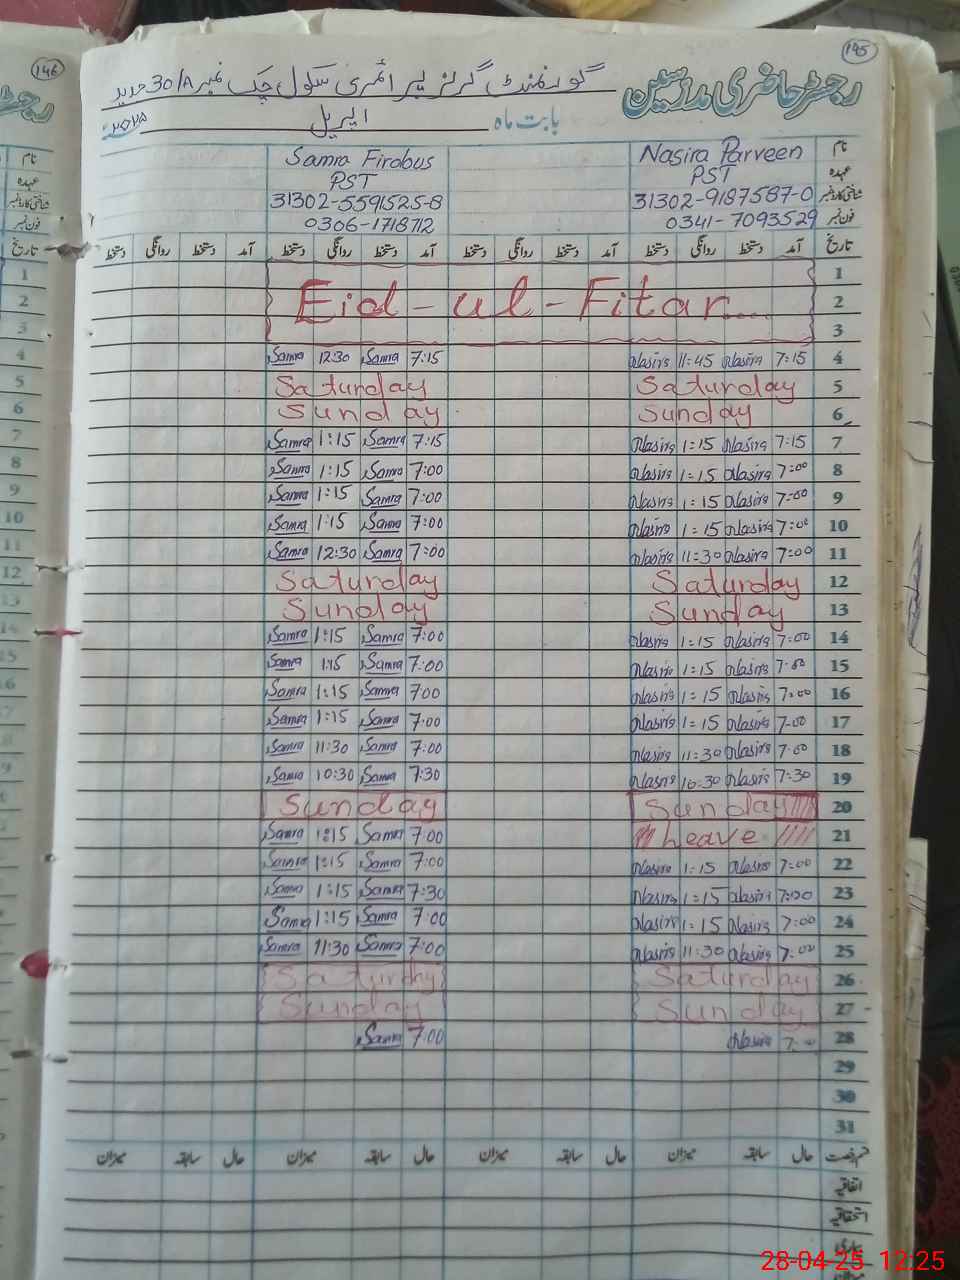 145
146
رجسٹر حاضری مدرسین
گورنمنٹ گرلز پرائمری سکول چک نمبر 30/A جدید
بابت ماہ اپریل ۲۰۲۵
نام Nasira Parveen Samra Firdous
عہدہ PST PST
شناختی کارڈ نمبر 31302-9187587-0 31302-5591525-8
فون نمبر 0341-7093529 0306-1718712
تاریخ آمد دستخط روانگی دستخط آمد دستخط روانگی دستخط آمد دستخط روانگی دستخط آمد دستخط روانگی دستخط
1
2 Eid-ul-Fitar....
3
Samra 12:30 Samra 7:15 Nasira 11:45 Nasira 7:15 4
Saturday Saturday 5
Sunday Sunday 6
Samra 1:15 Samra 7:15 Nasira 1:15 Nasira 7:15 7
Samra 1:15 Samra 7:00 Nasira 1:15 Nasira 7:00 8
Samra 1:15 Samra 7:00 Nasira 1:15 Nasira 7:00 9
Samra 1:15 Samra 7:00 Nasira 1:15 Nasira 7:00 10
Samra 12:30 Samra 7:00 Nasira 11:30 Nasira 7:00 11
Saturday Saturday 12
Sunday Sunday 13
Samra 1:15 Samra 7:00 Nasira 1:15 Nasira 7:00 14
Samra 1:15 Samra 7:00 Nasira 1:15 Nasira 7:00 15
Samra 1:15 Samra 7:00 Nasira 1:15 Nasira 7:00 16
Samra 1:15 Samra 7:00 Nasira 1:15 Nasira 7:00 17
Samra 11:30 Samra 7:00 Nasira 11:30 Nasira 7:00 18
Samra 10:30 Samra 7:30 Nasira 10:30 Nasira 7:30 19
Sunday Sunday 20
Samra 1:15 Samra 7:00 Leave 21
Samra 1:15 Samra 7:00 Nasira 1:15 Nasira 7:00 22
Samra 1:15 Samra 7:30 Nasira 1:15 Nasira 7:00 23
Samra 1:15 Samra 7:00 Nasira 1:15 Nasira 7:00 24
Samra 11:30 Samra 7:00 Nasira 11:30 Nasira 7:00 25
Saturday Saturday 26
Sunday Sunday 27
Samra 7:00 Nasira 7:00 28
29
30
31
قسم رخصت حال سابقہ میزان حال سابقہ میزان حال سابقہ میزان حال سابقہ میزان
اتفاقیہ
استحقاقیہ
بیماری
28-04-25 12:25